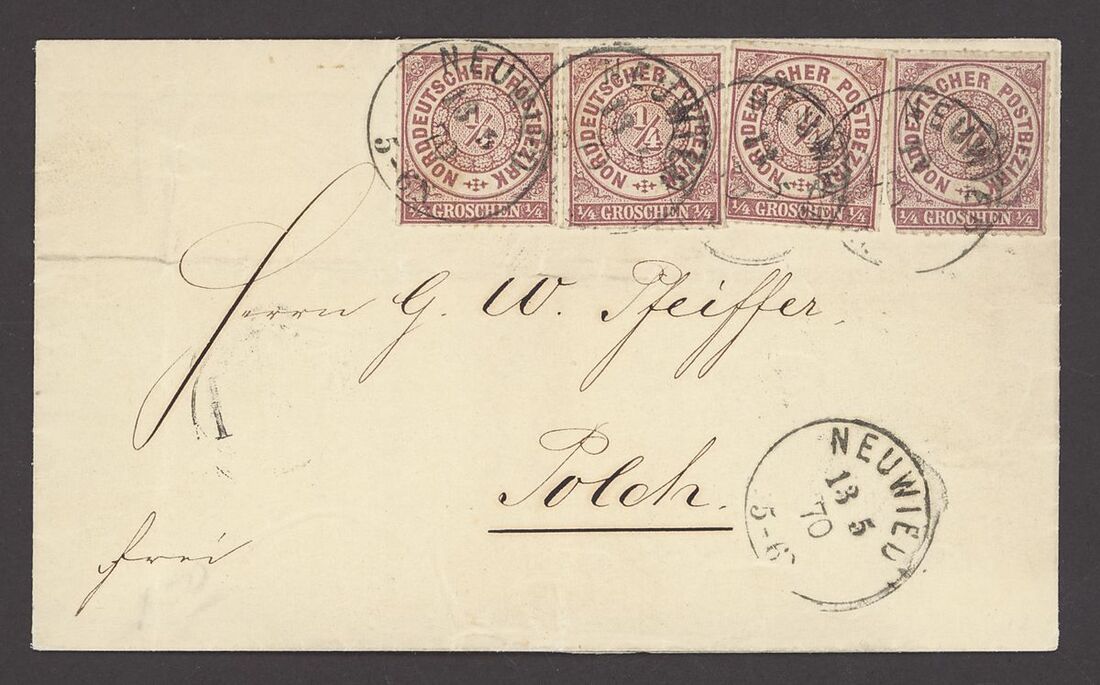 NORDDEUTSCHER POSTBEZIRK
1/4
1/4 GROSCHEN 1/4
NORDDEUTSCHER POSTBEZIRK
1/4
1/4 GROSCHEN 1/4
NORDDEUTSCHER POSTBEZIRK
1/4
1/4 GROSCHEN 1/4
NORDDEUTSCHER POSTBEZIRK
1/4 GROSCHEN 1/4
Herrn G. W. Pfeiffer,
Polch.
frei
NEUWIED
13 5
70
5-6